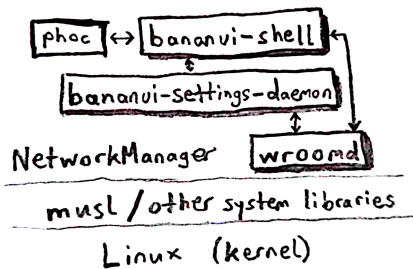 phoc ↔ bananui-shell
bananui-settings-daemon
NetworkManager wroomd
musl / other system libraries
Linux (kernel)